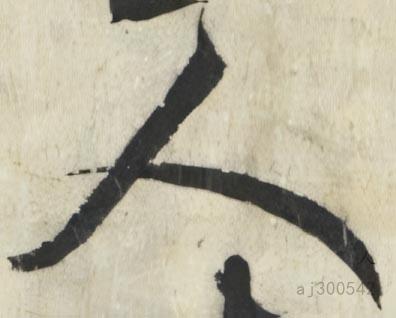 人
人
aj300542